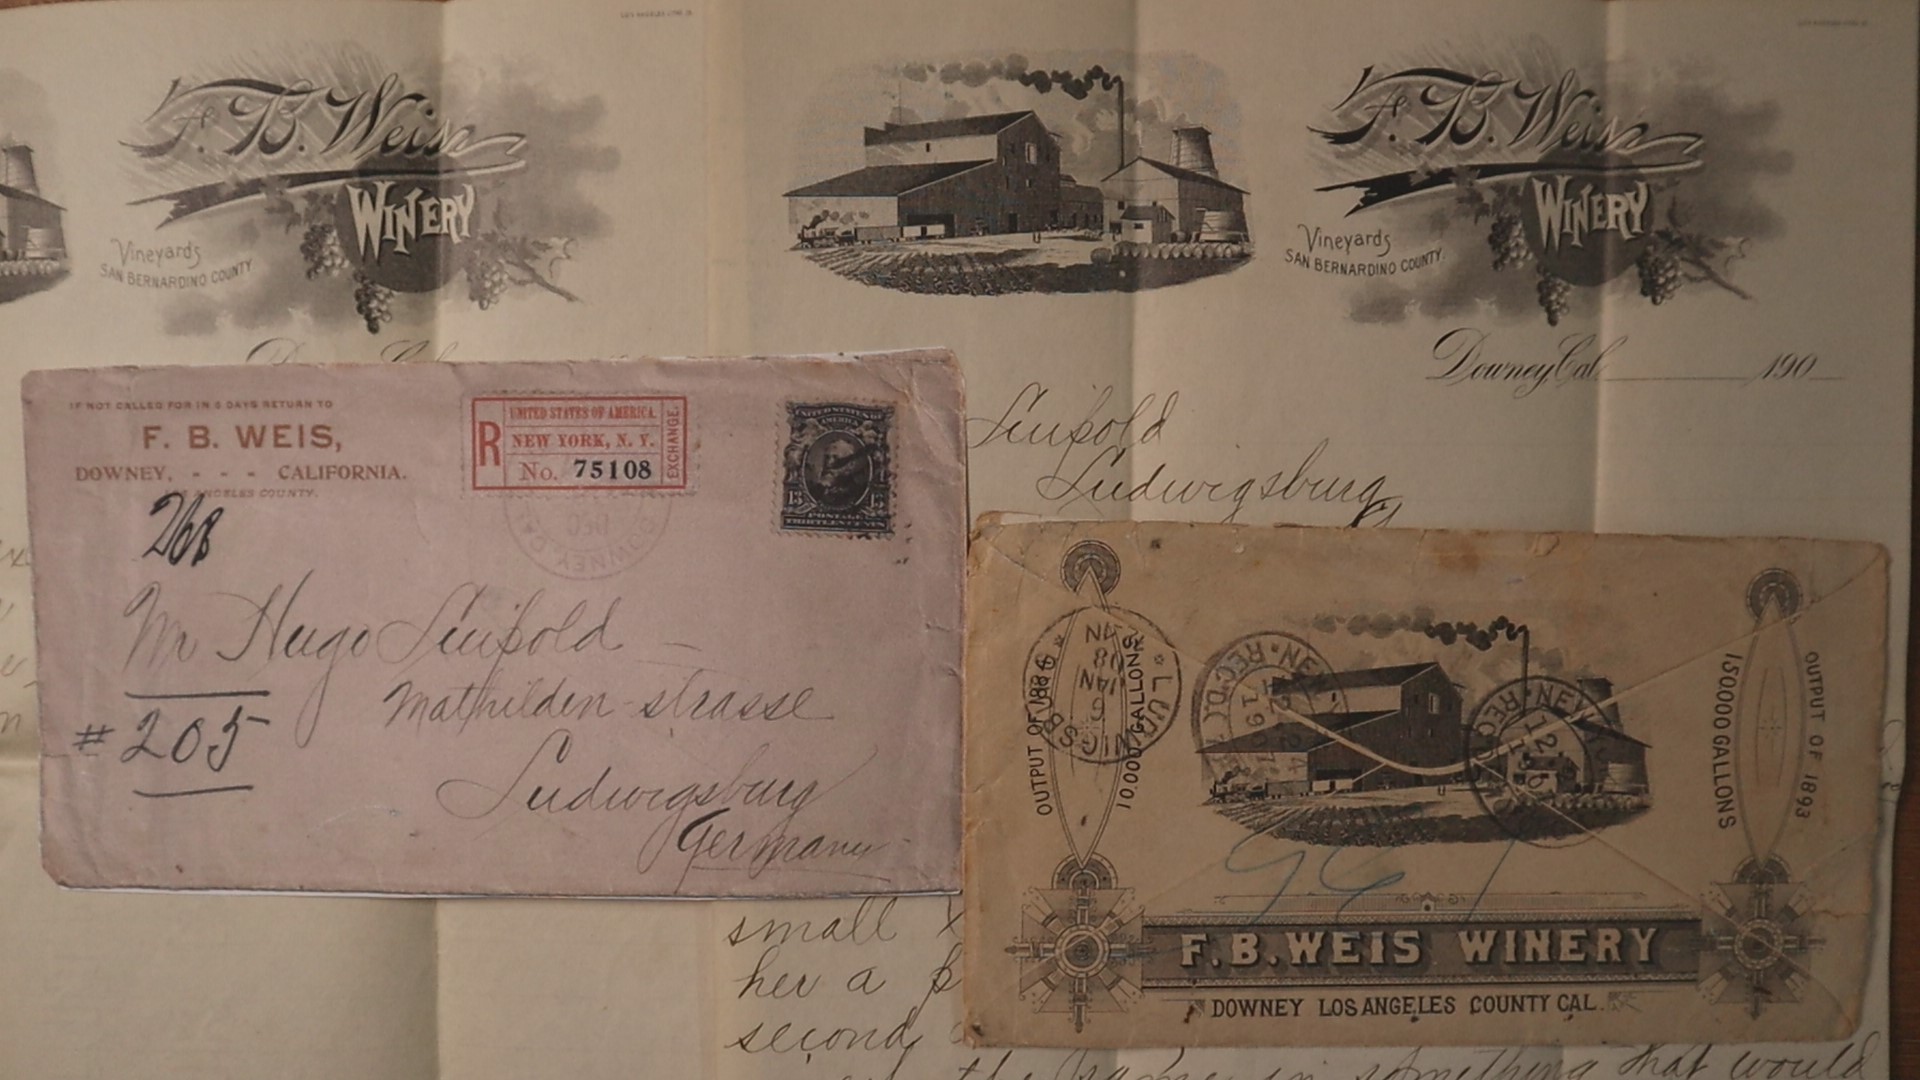 F. B. Weis
WINERY
Vineyards
SAN BERNARDINO COUNTY
F. B. Weis
WINERY
Vineyards
SAN BERNARDINO COUNTY.
Downey, Cal. 190
Ludwigsburg
IF NOT CALLED FOR IN 5 DAYS RETURN TO
F. B. WEIS,
DOWNEY, - - - CALIFORNIA.
ANGELES COUNTY.
R
UNITED STATES OF AMERICA.
NEW YORK, N. Y.
No. 75108
EXCHANGE.
UNITED STATES OF
AMERICA
13 13
POSTAGE
THIRTEEN CENTS
DOWNEY
268
Mr Hugo
Mathilden-strasse
# 205
Ludwigsburg
Germany
OUTPUT OF 1886
10.000 GALLONS
LUDWIGSBURG
JAN
150000 GALLONS
OUTPUT OF 1893
REC'D.
F. B. WEIS WINERY
DOWNEY LOS ANGELES COUNTY CAL.
small
her a
second
in something that would